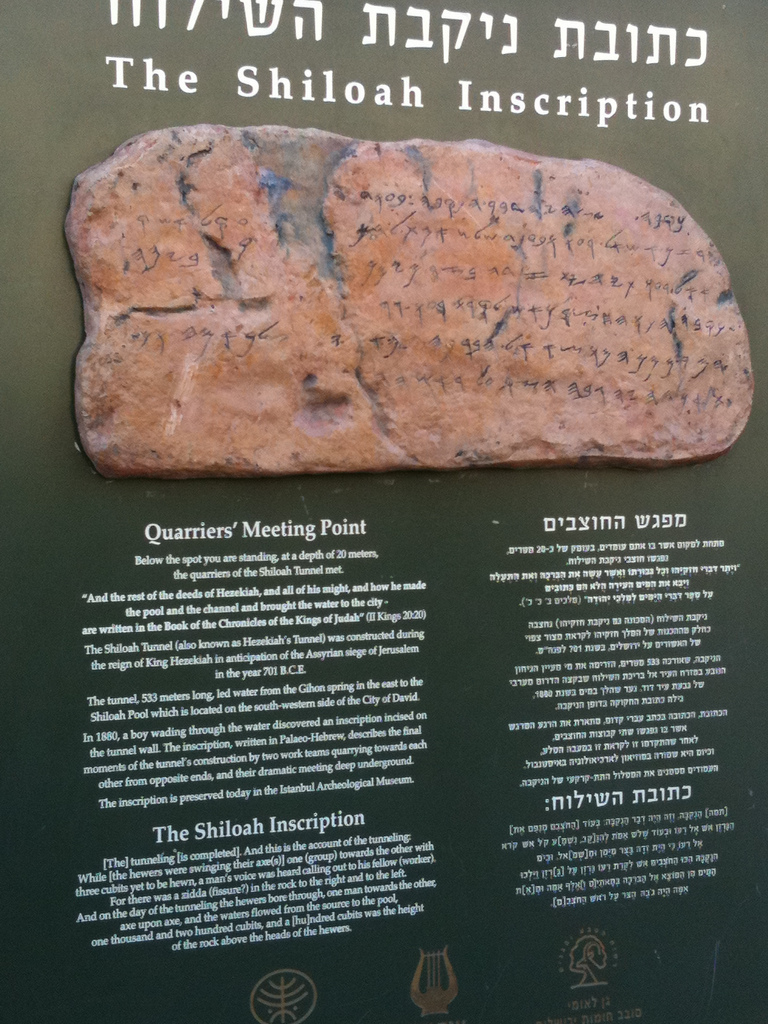 כתובת ניקבת השילוח
The Shiloah Inscription
Quarriers' Meeting Point
Below the spot you are standing, at a depth of 20 meters,
the quarriers of the Shiloah Tunnel met.
"And the rest of the deeds of Hezekiah, and all of his might, and how he made
the pool and the channel and brought the water to the city -
are written in the Book of the Chronicles of the Kings of Judah" (II Kings 20:20)
The Shiloah Tunnel (also known as Hezekiah's Tunnel) was constructed during
the reign of King Hezekiah in anticipation of the Assyrian siege of Jerusalem
in the year 701 B.C.E.
The tunnel, 533 meters long, led water from the Gihon spring in the east to the
Shiloah Pool which is located on the south-western side of the City of David.
In 1880, a boy wading through the water discovered an inscription incised on
the tunnel wall. The inscription, written in Palaeo-Hebrew, describes the final
moments of the tunnel's construction by two work teams quarrying towards each
other from opposite ends, and their dramatic meeting deep underground.
The inscription is preserved today in the Istanbul Archeological Museum.
The Shiloah Inscription
[The] tunneling [is completed]. And this is the account of the tunneling:
While [the hewers were swinging their axe(s)] one (group) towards the other with
three cubits yet to be hewn, a man's voice was heard calling out to his fellow (worker).
For there was a zidda (fissure?) in the rock to the right and to the left.
And on the day of the tunneling the hewers bore through, one man towards the other,
axe upon axe, and the waters flowed from the source to the pool,
one thousand and two hundred cubits, and a [hu]ndred cubits was the height
of the rock above the heads of the hewers.
מפגש החוצבים
מתחת למקום אשר בו אתם עומדים, בעומק של כ-20 מטרים,
נפגשו חוצבי ניקבת השילוח.
"ויתר דברי חזקיהו וכל גבורתו ואשר עשה את הברכה ואת התעלה
ויבא את המים העירה הלא הם כתובים
על ספר דברי הימים למלכי יהודה" (מלכים ב' כ' כ').
ניקבת השילוח (המכונה גם ניקבת חזקיהו) נחצבה
כחלק מההכנות של המלך חזקיהו לקראת מצור צפוי
של האשורים על ירושלים, בשנת 701 לפנה"ס.
הניקבה, שאורכה 533 מטרים, הזרימה את מי מעיין הגיחון
הנובע במזרח העיר אל בריכת השילוח שבקצה הדרום מערבי
של גבעת עיר דוד. נער שהלך במים בשנת 1880,
גילה כתובת החקוקה בדופן הניקבה.
הכתובת, הכתובה בכתב עברי קדום, מתארת את הרגע המרגש
אשר בו נפגשו שתי קבוצות החוצבים,
לאחר שהתקדמו זו לקראת זו במעבה הסלע,
וכיום היא שמורה במוזיאון לארכיאולוגיה באיסטנבול.
העמודים מסמנים את המסלול התת-קרקעי של הניקבה.
כתובת השילוח:
[תמה] הנקבה. וזה היה דבר הנקבה: בעוד [החצבם מנפם את]
הגרזן אש אל רעו ובעוד שלש אמת להנ[קב, נשמ]ע קל אש קרא
אל רעו כי הית זדה בצר מימן ומ[שמ]אל. ובים
הנקבה הכו החצבים אש לקרת רעו גרזן על [ג]רזן וילכו
המים מן המוצא אל הברכה במאתים ואלף אמה ומ[א]ת
אמה היה גבה הצר על ראש החצב[ם].
גן לאומי
סובב חומות ירושלים